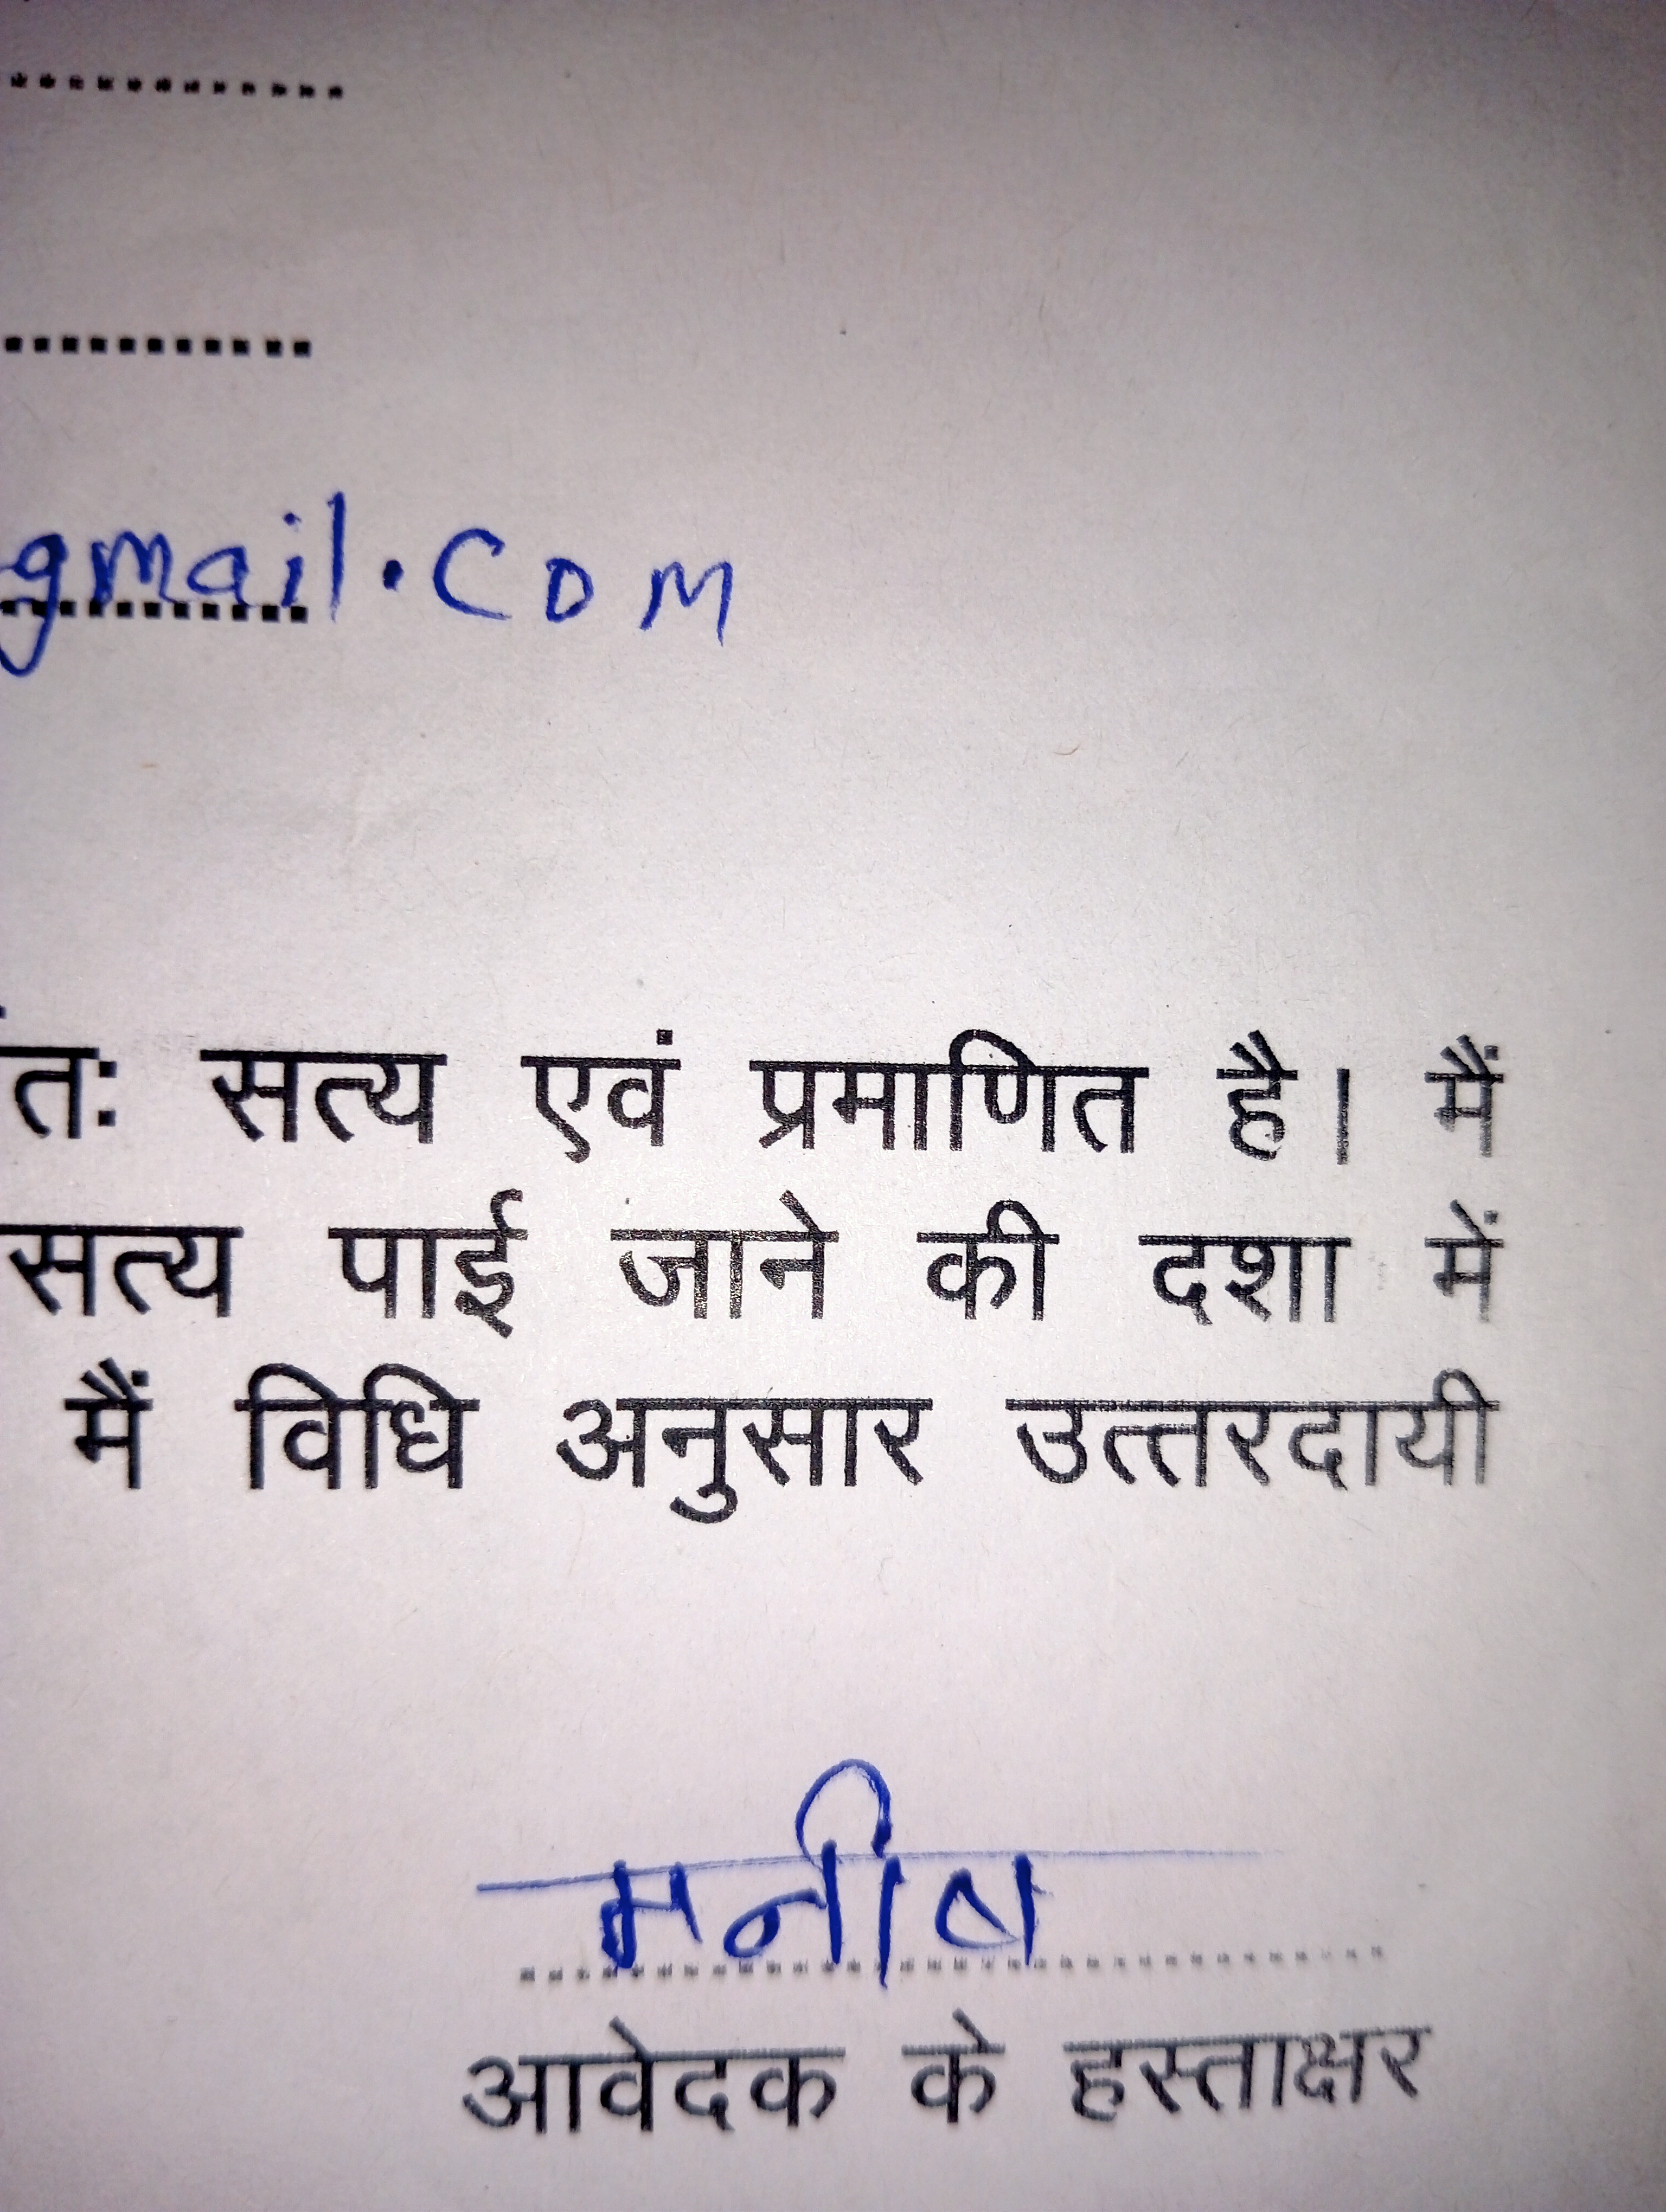 gmail.com
तः सत्य एवं प्रमाणित है। मैं
सत्य पाई जाने की दशा में
मैं विधि अनुसार उत्तरदायी
मनीष
आवेदक के हस्ताक्षर